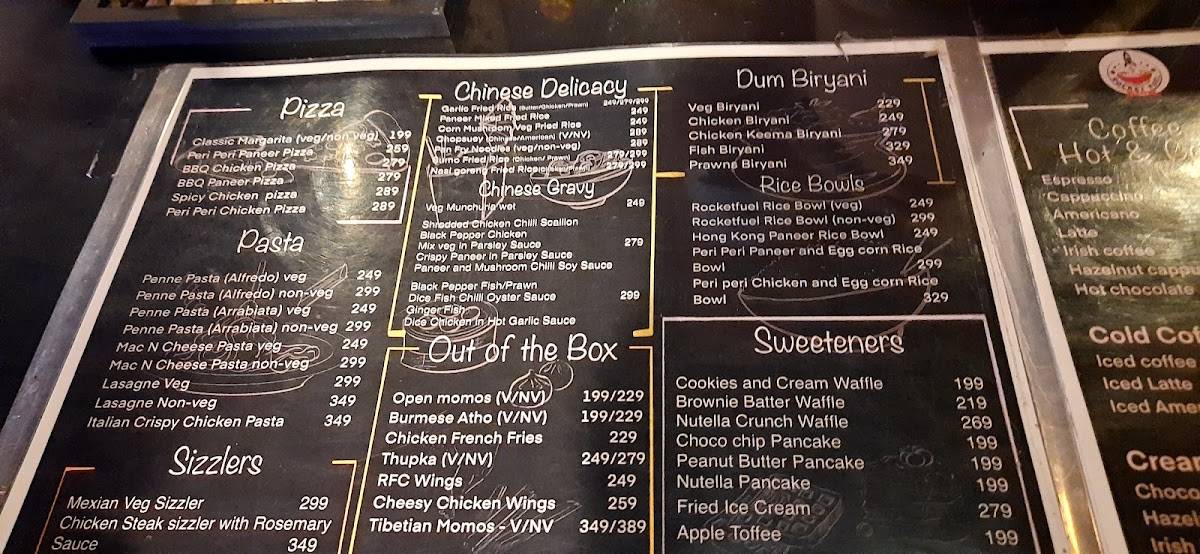 Pizza
Classic Margarita (veg/non veg) 199
Peri Peri Paneer Pizza 259
BBQ Chicken Pizza 279
BBQ Paneer Pizza 279
Spicy Chicken pizza 289
Peri Peri Chicken Pizza 289
Pasta
Penne Pasta (Alfredo) veg 249
Penne Pasta (Alfredo) non-veg 299
Penne Pasta (Arrabiata) veg 249
Penne Pasta (Arrabiata) non-veg 299
Mac N Cheese Pasta veg 249
Mac N Cheese Pasta non-veg 299
Lasagne Veg 299
Lasagne Non-veg 349
Italian Crispy Chicken Pasta 349
Sizzlers
Mexian Veg Sizzler 299
Chicken Steak sizzler with Rosemary
Sauce 349
Chinese Delicacy
Garlic Fried Rice (Button/Chicken/Prawn) 249/279/299
Paneer Mixed Fried Rice 249
Corn Mushroom Veg Fried Rice 249
Chopsuey (Chinese/American) (V/NV) 289
Pan Fry Noodles (veg/non-veg) 289
Fried Rice (Chicken/ Prawn) 279/299
Nasi goreng Fried Rice (Chicken/Prawn) 279/299
Chinese Gravy
Veg Munchuria wet 249
Shredded Chicken Chilli Scallion
Black Pepper Chicken
Mix veg in Parsley Sauce 279
Crispy Paneer in Parsley Sauce
Paneer and Mushroom Chilli Soy Sauce
Black Pepper Fish/Prawn
Dice Fish Chilli Oyster Sauce 299
Ginger Fish
Dice Chicken in Hot Garlic Sauce
Out of the Box
Open momos (V/NV) 199/229
Burmese Atho (V/NV) 199/229
Chicken French Fries 229
Thupka (V/NV) 249/279
RFC Wings 249
Cheesy Chicken Wings 259
Tibetian Momos - V/NV 349/389
Dum Biryani
Veg Biryani 229
Chicken Biryani 249
Chicken Keema Biryani 279
Fish Biryani 329
Prawns Biryani 349
Rice Bowls
Rocketfuel Rice Bowl (veg) 249
Rocketfuel Rice Bowl (non-veg) 299
Hong Kong Paneer Rice Bowl 249
Peri Peri Paneer and Egg corn Rice
Bowl 299
Peri peri Chicken and Egg corn Rice
Bowl 329
Sweeteners
Cookies and Cream Waffle 199
Brownie Batter Waffle 219
Nutella Crunch Waffle 269
Choco chip Pancake 199
Peanut Butter Pancake 199
Nutella Pancake 199
Fried Ice Cream 279
Apple Toffee 199
Coffee
Hot &
Espresso
Cappuccino
Americano
Latte
Irish coffee
Hazelnut capp
Hot chocolate
Cold Co
Iced coffee
Iced Latte
Iced Ame
Crea
Choco
Hazel
Irish